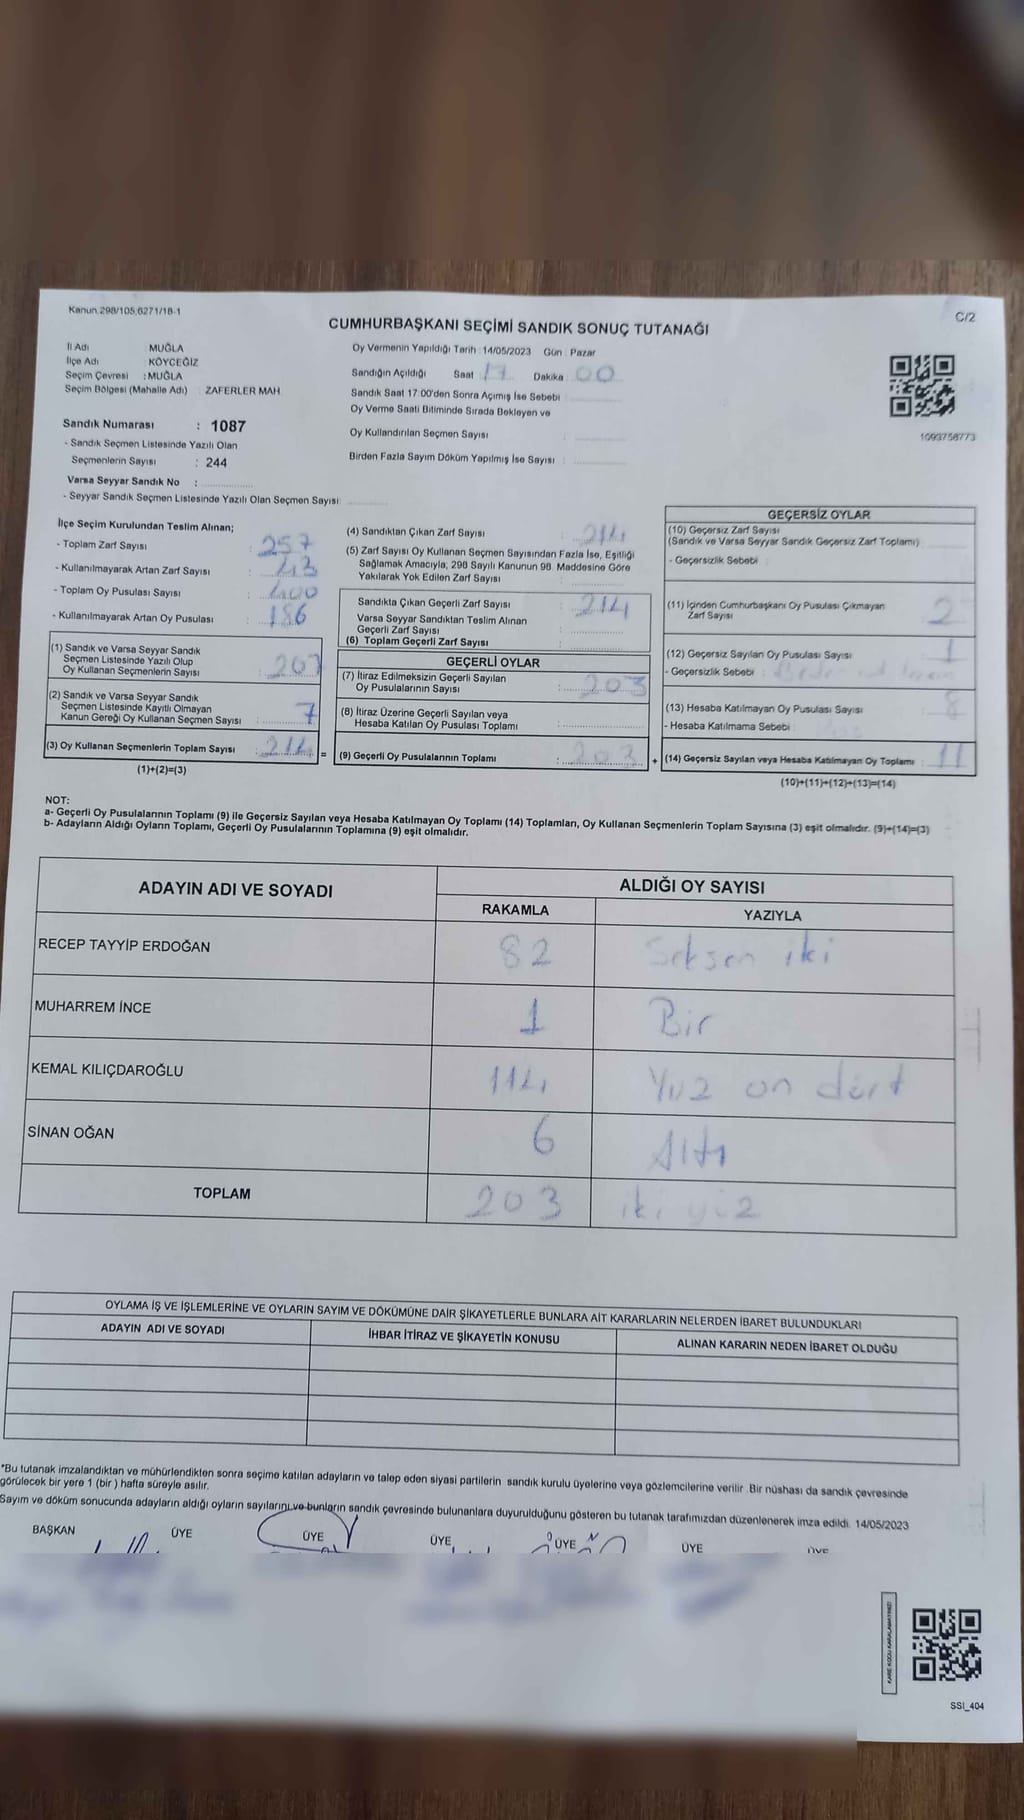 Kanun.298/105,6271/18-1
C/2
CUMHURBAŞKANI SEÇİMİ SANDIK SONUÇ TUTANAĞI
İl Adı MUĞLA
İlçe Adı KÖYCEĞİZ
Seçim Çevresi :MUĞLA
Seçim Bölgesi (Mahalle Adı) : ZAFERLER MAH.
Oy Vermenin Yapıldığı Tarih :14/05/2023 Gün : Pazar
Sandığın Açıldığı Saat 17 Dakika 00
Sandık Saat 17:00'den Sonra Açımış İse Sebebi :
Oy Verme Saati Bitiminde Sırada Bekleyen ve
Oy Kullandırılan Seçmen Sayısı :
Birden Fazla Sayım Döküm Yapılmış İse Sayısı :
1093758773
Sandık Numarası : 1087
- Sandık Seçmen Listesinde Yazılı Olan
Seçmenlerin Sayısı : 244
Varsa Seyyar Sandık No :
- Seyyar Sandık Seçmen Listesinde Yazılı Olan Seçmen Sayısı:
İlçe Seçim Kurulundan Teslim Alınan;
- Toplam Zarf Sayısı : 257
- Kullanılmayarak Artan Zarf Sayısı : 43
- Toplam Oy Pusulası Sayısı : 400
- Kullanılmayarak Artan Oy Pusulası : 186
(1) Sandık ve Varsa Seyyar Sandık
Seçmen Listesinde Yazılı Olup
Oy Kullanan Seçmenlerin Sayısı : 207
(2) Sandık ve Varsa Seyyar Sandık
Seçmen Listesinde Kayıtlı Olmayan
Kanun Gereği Oy Kullanan Seçmen Sayısı : 7
(3) Oy Kullanan Seçmenlerin Toplam Sayısı : 214 =
(1)+(2)=(3)
(4) Sandıktan Çıkan Zarf Sayısı : 214
(5) Zarf Sayısı Oy Kullanan Seçmen Sayısından Fazla İse, Eşitliği
Sağlamak Amacıyla, 298 Sayılı Kanunun 98. Maddesine Göre
Yakılarak Yok Edilen Zarf Sayısı :
Sandıkta Çıkan Geçerli Zarf Sayısı : 214
Varsa Seyyar Sandıktan Teslim Alınan
Geçerli Zarf Sayısı :
(6) Toplam Geçerli Zarf Sayısı :
GEÇERLİ OYLAR
(7) İtiraz Edilmeksizin Geçerli Sayılan
Oy Pusulalarının Sayısı : 203
(8) İtiraz Üzerine Geçerli Sayılan veya
Hesaba Katılan Oy Pusulası Toplamı :
(9) Geçerli Oy Pusulalarının Toplamı : 203 +
GEÇERSİZ OYLAR
(10) Geçersiz Zarf Sayısı
(Sandık ve Varsa Seyyar Sandık Geçersiz Zarf Toplamı)
- Geçersizlik Sebebi :
(11) İçinden Cumhurbaşkanı Oy Pusulası Çıkmayan
Zarf Sayısı : 2
(12) Geçersiz Sayılan Oy Pusulası Sayısı : 1
- Geçersizlik Sebebi :
(13) Hesaba Katılmayan Oy Pusulası Sayısı : 8
- Hesaba Katılmama Sebebi
(14) Geçersiz Sayılan veya Hesaba Katılmayan Oy Toplamı : 11
(10)+(11)+(12)+(13)=(14)
NOT:
a- Geçerli Oy Pusulalarının Toplamı (9) ile Geçersiz Sayılan veya Hesaba Katılmayan Oy Toplamı (14) Toplamları, Oy Kullanan Seçmenlerin Toplam Sayısına (3) eşit olmalıdır. (9)+(14)=(3)
b- Adayların Aldığı Oyların Toplamı, Geçerli Oy Pusulalarının Toplamına (9) eşit olmalıdır.
ADAYIN ADI VE SOYADI ALDIĞI OY SAYISI
RAKAMLA YAZIYLA
RECEP TAYYİP ERDOĞAN 82 Seksen iki
MUHARREM İNCE 1 Bir
KEMAL KILIÇDAROĞLU 114 Yüz on dört
SİNAN OĞAN 6 Altı
TOPLAM 203 iki yüz
OYLAMA İŞ VE İŞLEMLERİNE VE OYLARIN SAYIM VE DÖKÜMÜNE DAİR ŞİKAYETLERLE BUNLARA AİT KARARLARIN NELERDEN İBARET BULUNDUKLARI
ADAYIN ADI VE SOYADI İHBAR İTİRAZ VE ŞİKAYETİN KONUSU ALINAN KARARIN NEDEN İBARET OLDUĞU
*Bu tutanak imzalandıktan ve mühürlendikten sonra seçime katılan adayların ve talep eden siyasi partilerin sandık kurulu üyelerine veya gözlemcilerine verilir. Bir nüshası da sandık çevresinde
görülecek bir yere 1 (bir ) hafta süreyle asılır.
Sayım ve döküm sonucunda adayların aldığı oyların sayılarını ve bunların sandık çevresinde bulunanlara duyurulduğunu gösteren bu tutanak tarafımızdan düzenlenerek imza edildi. 14/05/2023
BAŞKAN ÜYE ÜYE ÜYE ÜYE ÜYE ÜYE
KARE KODU KARALAMAYINIZ!
SSI_404